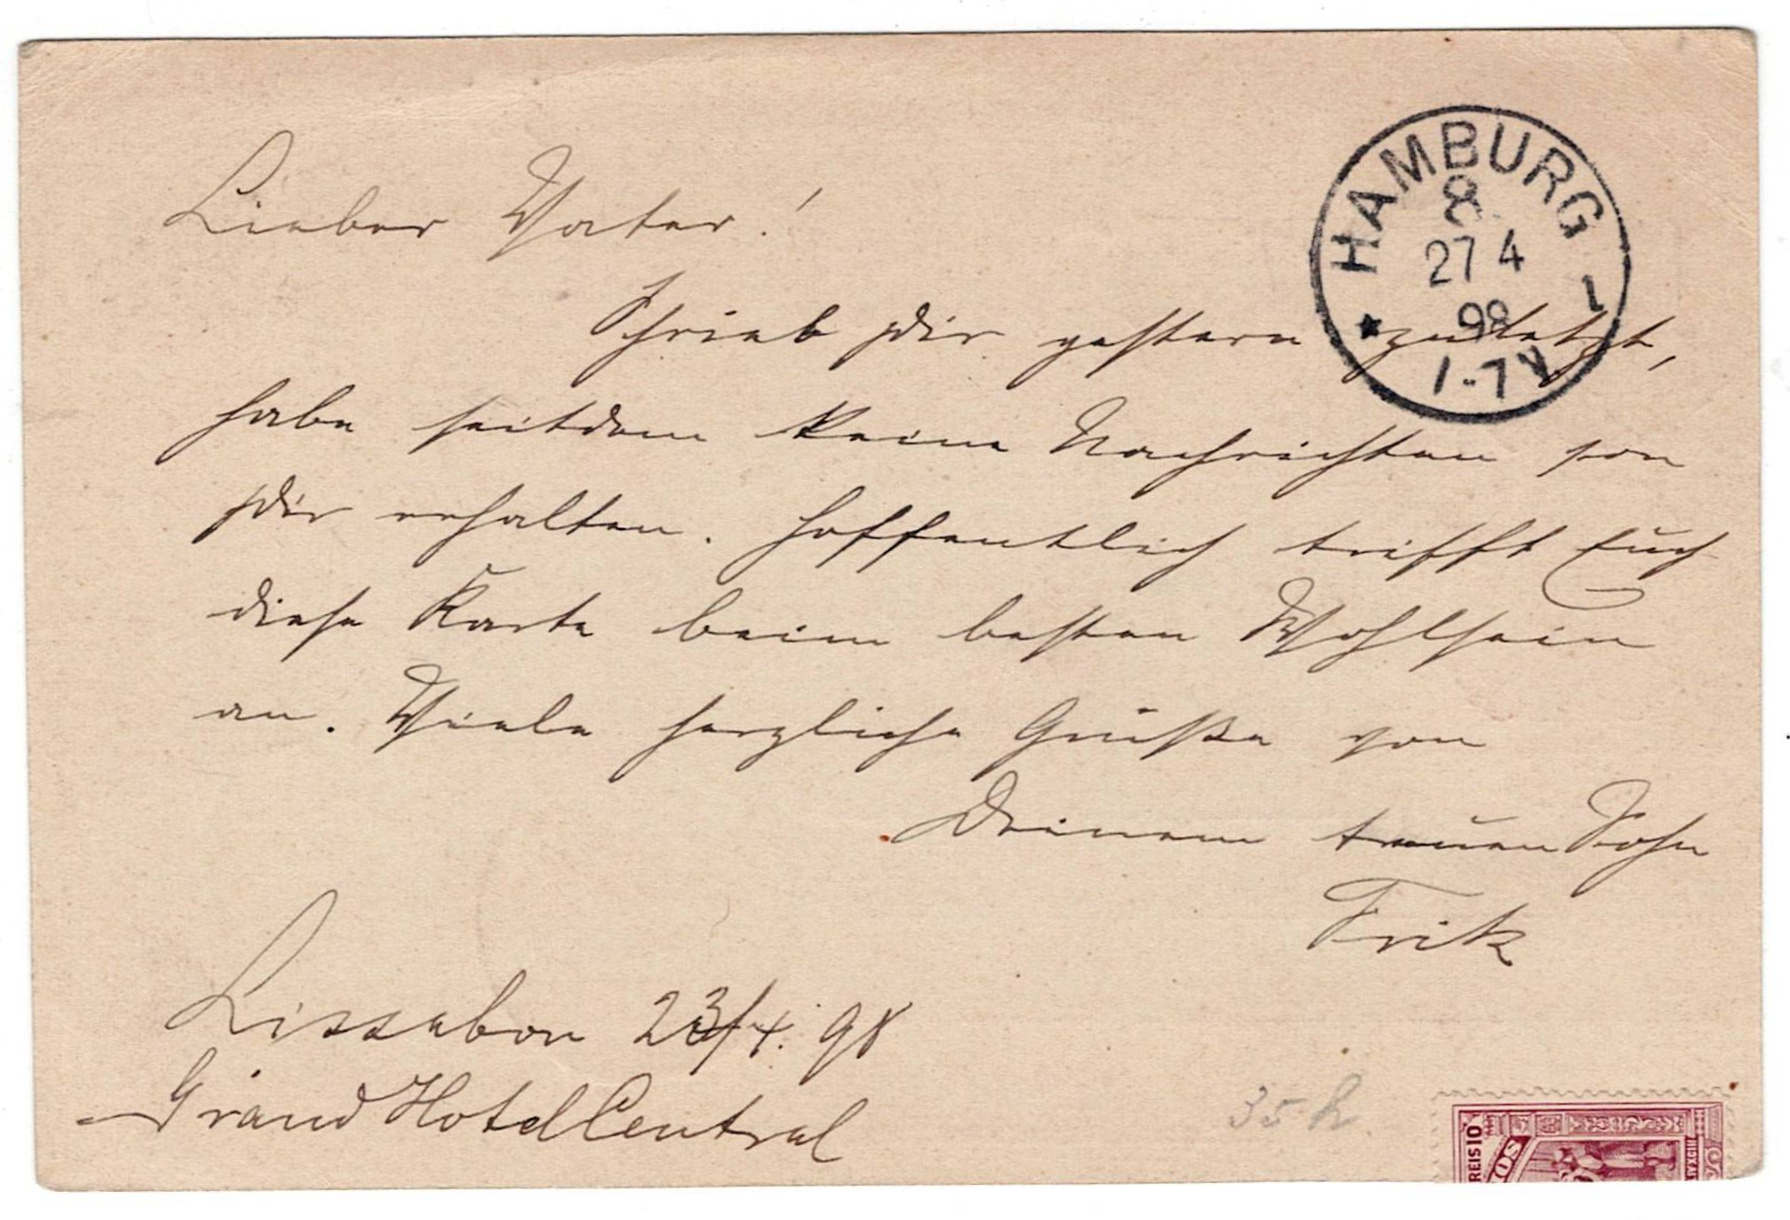 Lieber Vater!
Schrieb Dir gestern zuletzt,
habe seitdem keine Nachrichten von
Dir erhalten. Hoffentlich trifft Euch
diese Karte beim besten Wohlsein
an. Viele herzliche Grüße von
Deinem treuen Sohn
Frik
Lissabon 23/4. 98
Grand Hotel Central
HAMBURG 1
8
27 4
98
1-7V
35 h
REIS 10